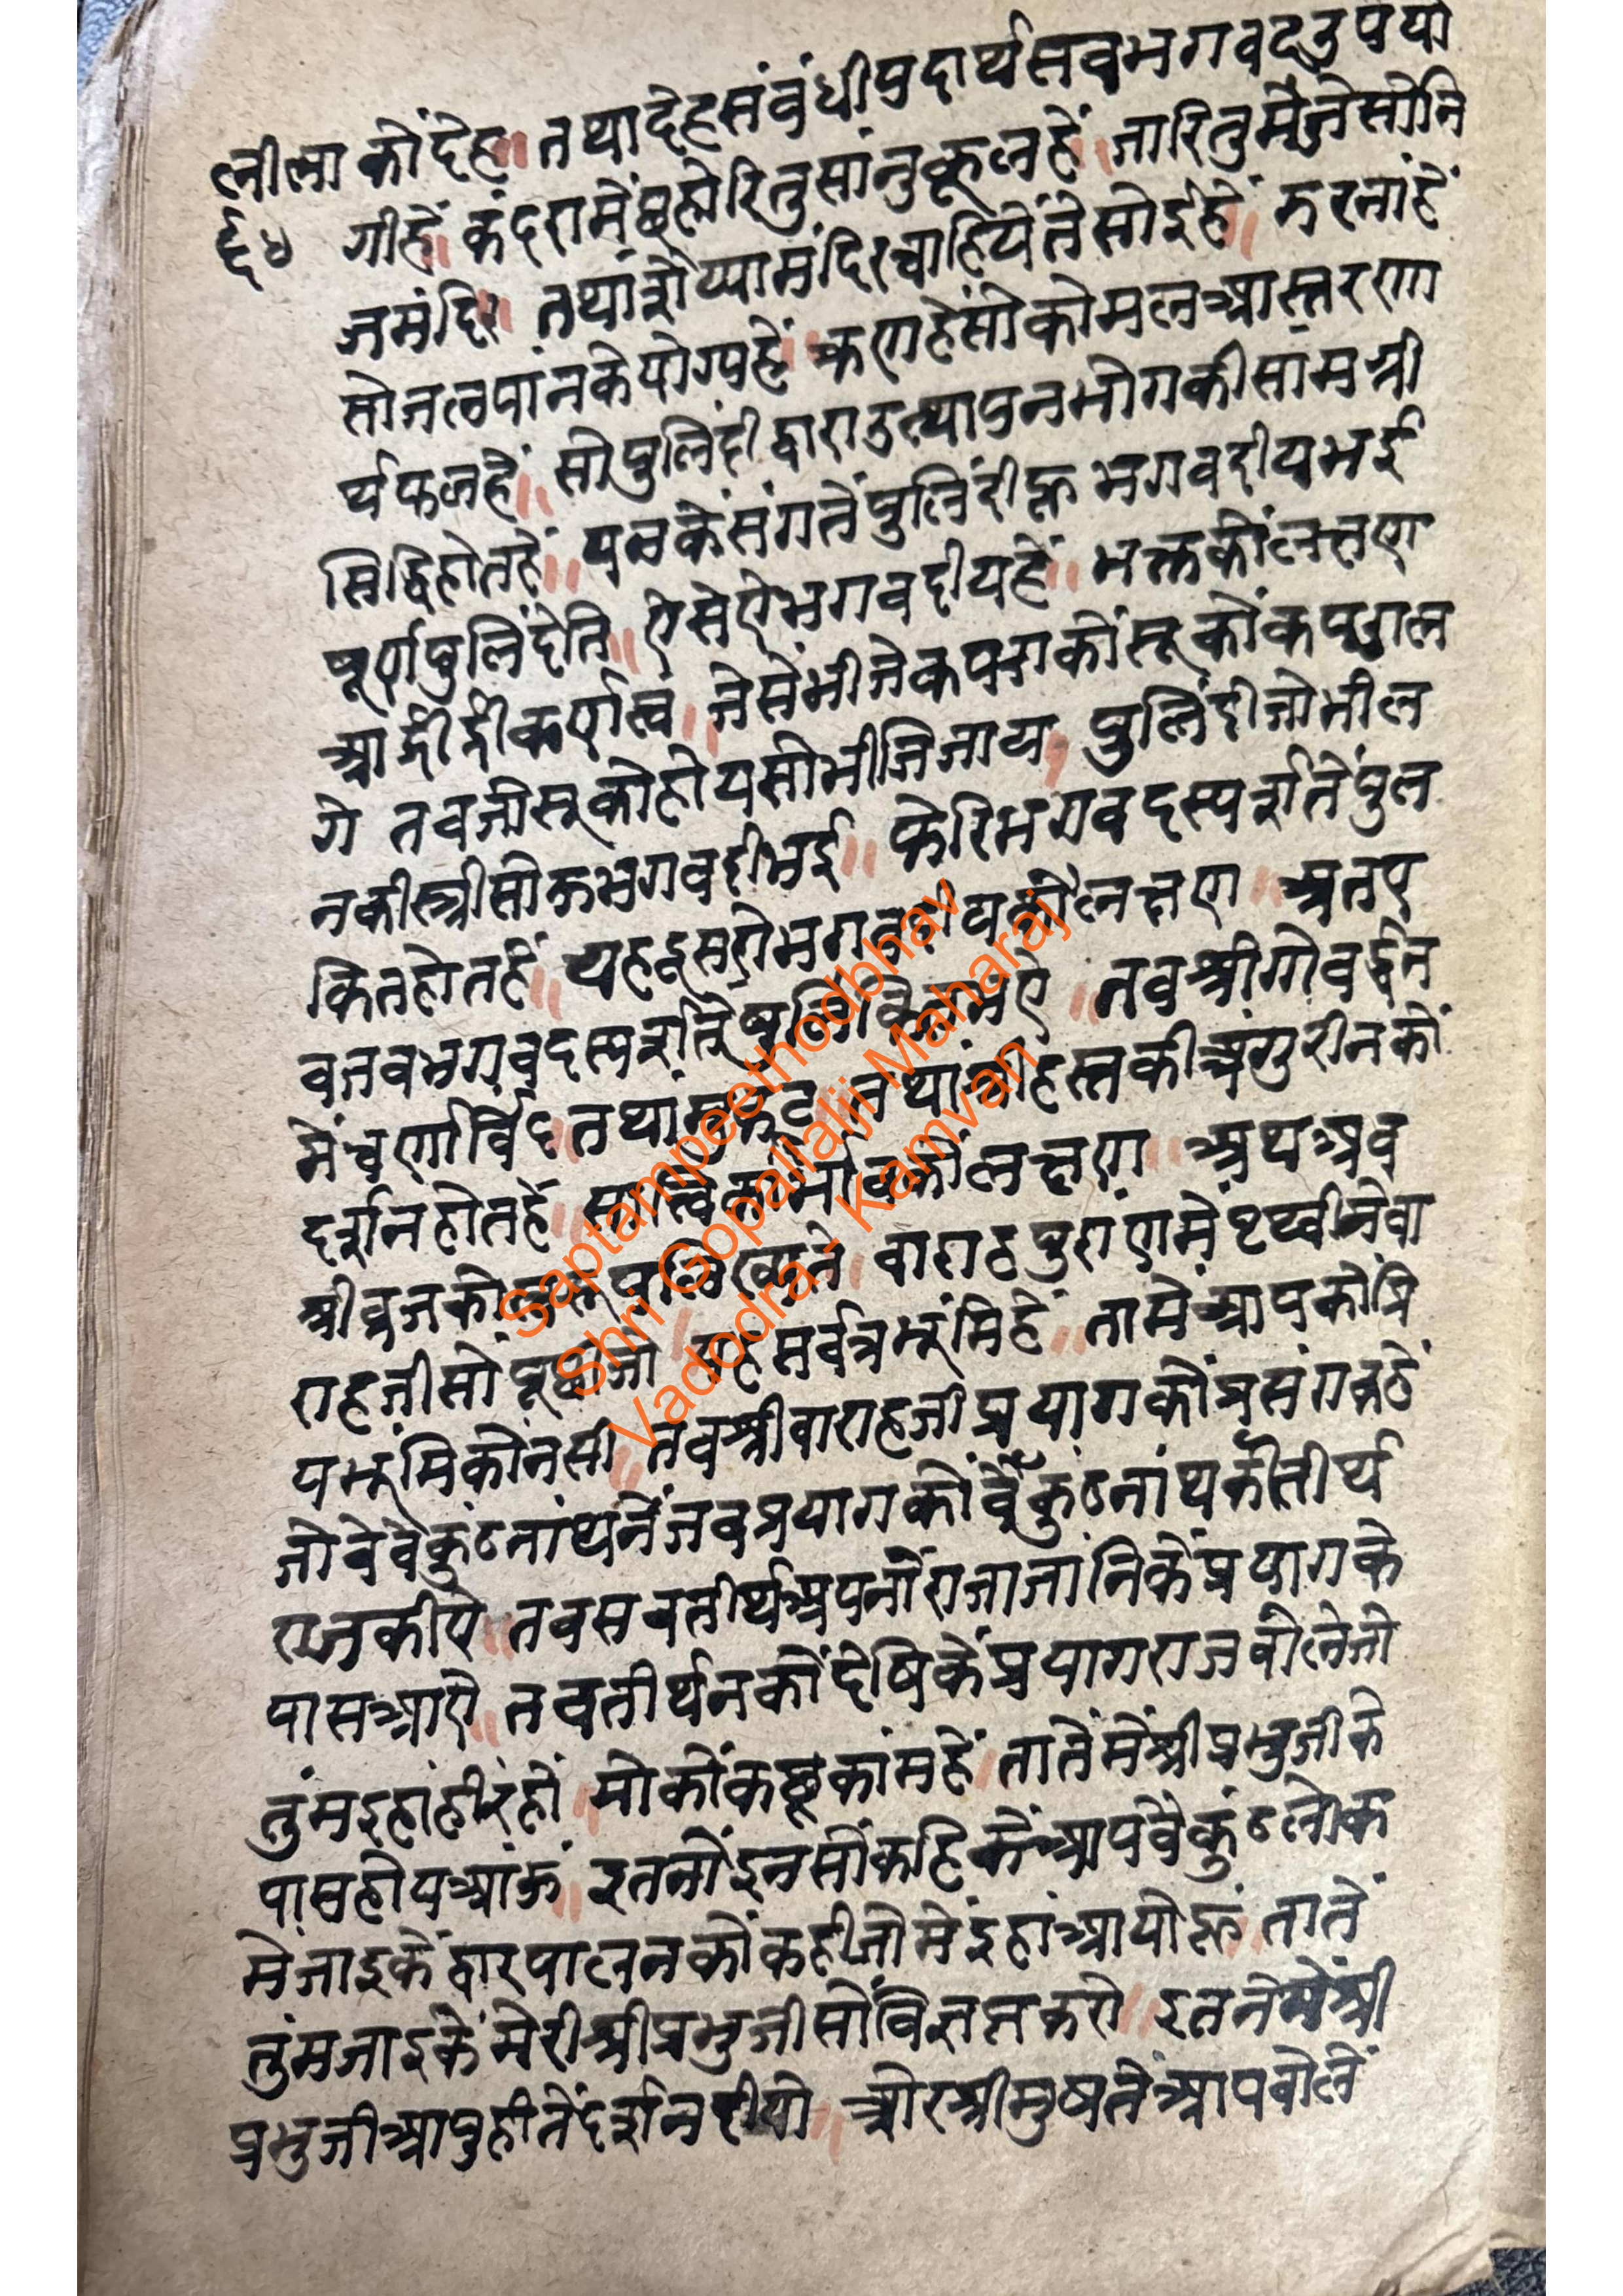 लीला कों देह॥ तथा देह संबंधी पदार्थ सब भगवद उपयो
६४ गी हें॥ कंदरा में छहो रितु सांनुकूल हें॥ जा रितु में जेसो नि
ज मंदिर॥ तथा शैय्या मंदिर चाहिये तेसोई हें॥ झरनां हें
सो जलपांन के योग्य हें॥ त्रण हें सो कोमल आस्तरण
र्थ फल हें॥ सो पुलिंदी द्वारा उत्थापन भोग की सामग्री
सिद्धि होत हें॥ यन के संग तें पुलिंदी हू भगवदीय भई
पूर्ण पुलिंदेति॥ ऐसे ऐ भगवदीय हें॥ भक्त कों लक्षण
आर्द्रार्द्रीकर्णत्वं॥ जेसें भीजे कपरा कों सूकों कपरा ल
गे तब जो सूको होय सो भीजि जाय॥ पुलिंदी जो भील
न की स्त्री सो हू भगवदी भई॥ फेरि भगवद स्पर्श तें पुल
कित होत हें॥ यह दूसरो भगवदीय कों लक्षण॥ अत ए
व जब भगवद स्पर्श तें पुलकित भऐ॥ तब श्री गोवर्द्धन
में चर्णार्विंद॥ तथा मुकट॥ तथां श्री हस्त की अंगुरीन कों
दर्शन होत हें॥ सात्विकी भाव कों लक्षण॥ अथ अब
श्री व्रज को स्वरूप लिख्यते॥ वाराह पुरांण में पृथ्वी ने वा
राह जी सों पूछी जो॥ यह सर्वत्र भूंमि हें॥ तामें आप कों प्रि
य भूंमि कोंन सी॥ तब श्री वाराह जी प्रयाग कों प्रसंग कहें
जो वे वैकुंठ नांथ नें जब प्रयाग कों वैकुंठ नांथ कों तीर्थ
राज कीऐ॥ तब सब तीर्थ अपनों राजा जांनि कें प्रयाग के
पास आऐ॥ तब तीर्थन कों देषि कें प्रयागराज बोले जो
तुंम इहां ही रहो॥ मो कों कछू कांम हें॥ तातें में श्री प्रभुजी के
पास होय आंऊं॥ इतनों इन सों कहि कें आप वैकुंठ लोक
में जाइ कें द्वारपालन कों कही जो में इहां आयो हूं॥ तातें
तुंम जाइ कें मेरी श्री प्रभुजी सों विज्ञप्त करो॥ इतने में श्री
प्रभुजी आपु ही तें दर्शन दीयो॥ ओर श्री मुष तें आप बोलें
Saptampeethodbhav
Shri Gopallalji Maharaj
Vadodra - Kamvan